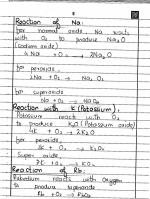 Reaction of Na:
For normal oxide, Na react
with O2 to produce Na2O
(Sodium oxide)
4Na + O2 → 2Na2O
For peroxide:
2Na + O2 → Na2O2
For superoxide
Na + O2 → NaO2
Reaction with K (Potassium):
Potassium reacts with O2
to produce K2O (Potassium oxide)
4K + O2 → 2K2O
For peroxide:
2K + O2 → K2O2
Super oxide:
K + O2 → KO2
Reaction of Rb:
Rubidium reacts with oxygen
to produce superoxide
Rb + O2 → RbO2